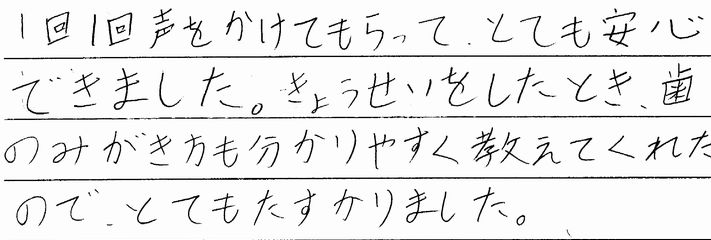 1回1回声をかけてもらって、とても安心
できました。きょうせいをしたとき、歯
のみがき方も分かりやすく教えてくれた
ので、とてもたすかりました。